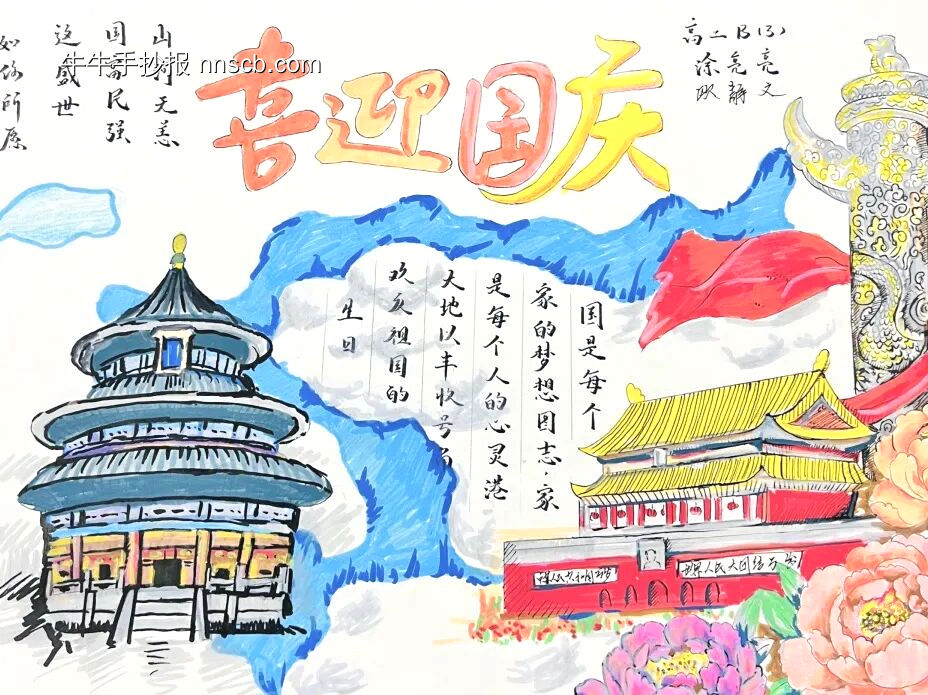 喜迎国庆
牛牛手抄报 nnscb.com
高二B(3)
涂亮亮
静文
山河无恙
国富民强
这盛世
如你所愿
国是每个
家的梦想图志·家
是每个人的心灵港
大地以丰收号
欢庆祖国的
生日
人民大团结万岁